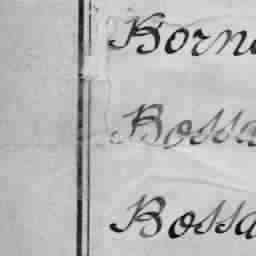 Born
Bossa
Bossa